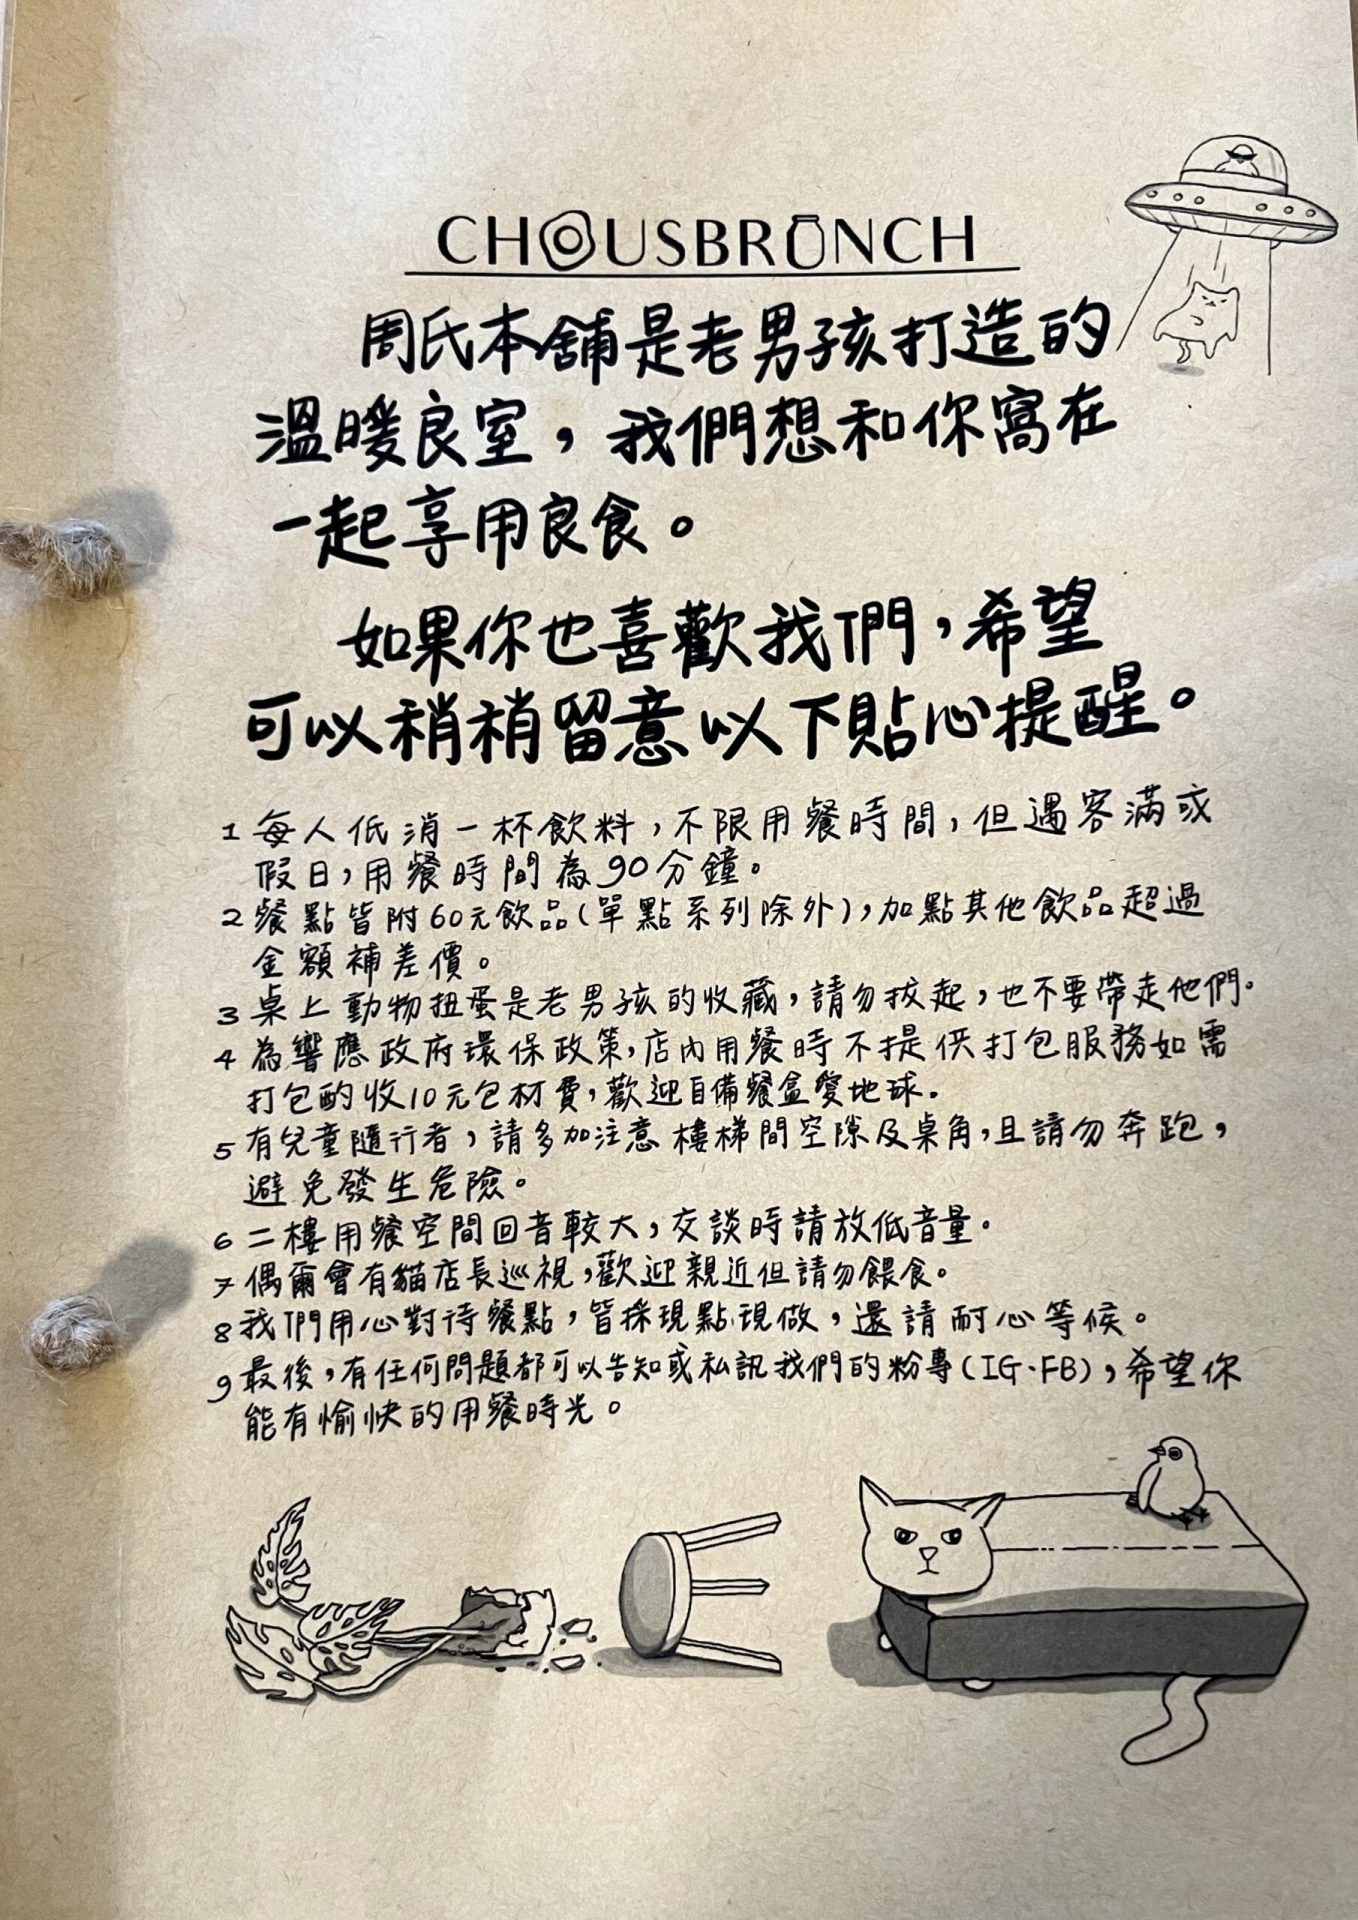 CHOUSBRUNCH
周氏本舖是老男孩打造的
溫暖良室，我們想和你窩在
一起享用良食。
如果你也喜歡我們，希望
可以稍稍留意以下貼心提醒。
1 每人低消一杯飲料，不限用餐時間，但遇客滿或
假日，用餐時間為90分鐘。
2 餐點皆附60元飲品(單點系列除外)，加點其他飲品超過
金額補差價。
3 桌上動物扭蛋是老男孩的收藏，請勿拔起，也不要帶走他們.
4 為響應政府環保政策，店內用餐時不提供打包服務如需
打包酌收10元包材費，歡迎自備餐盒愛地球.
5 有兒童隨行者，請多加注意樓梯間空隙及桌角，且請勿奔跑，
避免發生危險。
6 二樓用餐空間回音較大，交談時請放低音量。
7 偶爾會有貓店長巡視，歡迎親近但請勿餵食。
8 我們用心對待餐點，皆採現點現做，還請耐心等候。
9 最後，有任何問題都可以告知或私訊我們的粉專(IG·FB)，希望你
能有愉快的用餐時光。